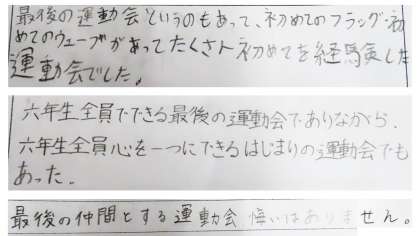 最後の運動会というのもあって、初めてのフラッグ・初
めてのウェーブがあってたくさん初めてを経験した
運動会でした。
六年生全員でできる最後の運動会でありながら、
六年生全員心を一つにできるはじまりの運動会でも
あった。
最後の仲間とする運動会 悔いはありません。